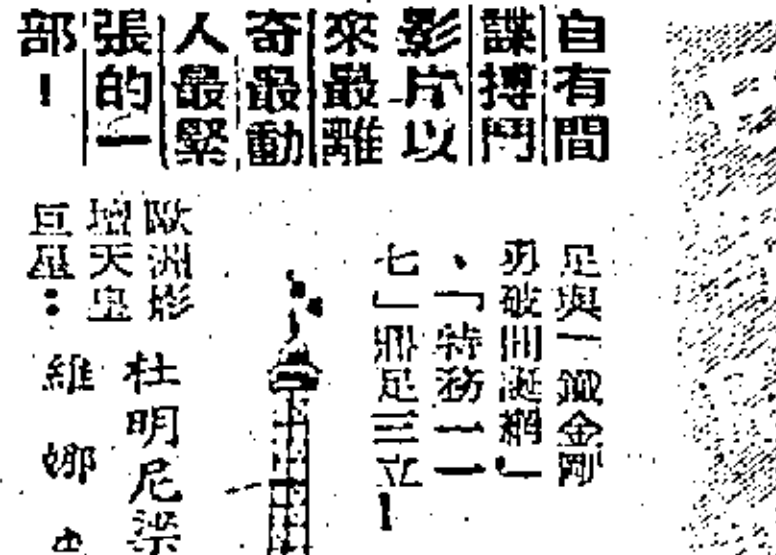 自有間
諜搏鬥
影片以
來最離
奇最動
人最緊
張的一
部！
足與「鐵金剛
勇破間諜網」
、「特務一一
七」鼎足三立！
歐洲影
壇天皇
巨星：
杜明尼
維娜